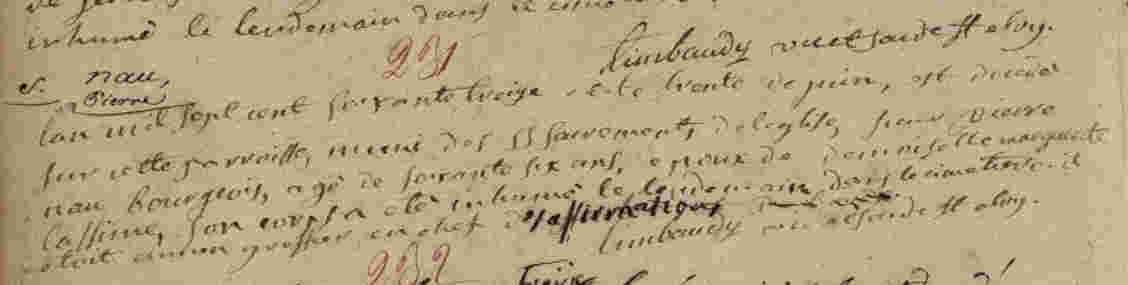 inhumé le lendemain dans le
Limbaudy vic de St eloy.
231
S. nau,
Pierre
lan mil sept cent soixante treize et le trente de juin, est décédé
sur cette parroisse, muni des SS sacrements, de leglise, sieur pierre
nau bourgeois, agé de soixante six ans, epoux de demoiselle marguerite
lassime, son corps a eté inhumé le lendemain dans le cimetiere. il
etoit ancien greffier en chef
Limbaudy vic de St eloy.
232